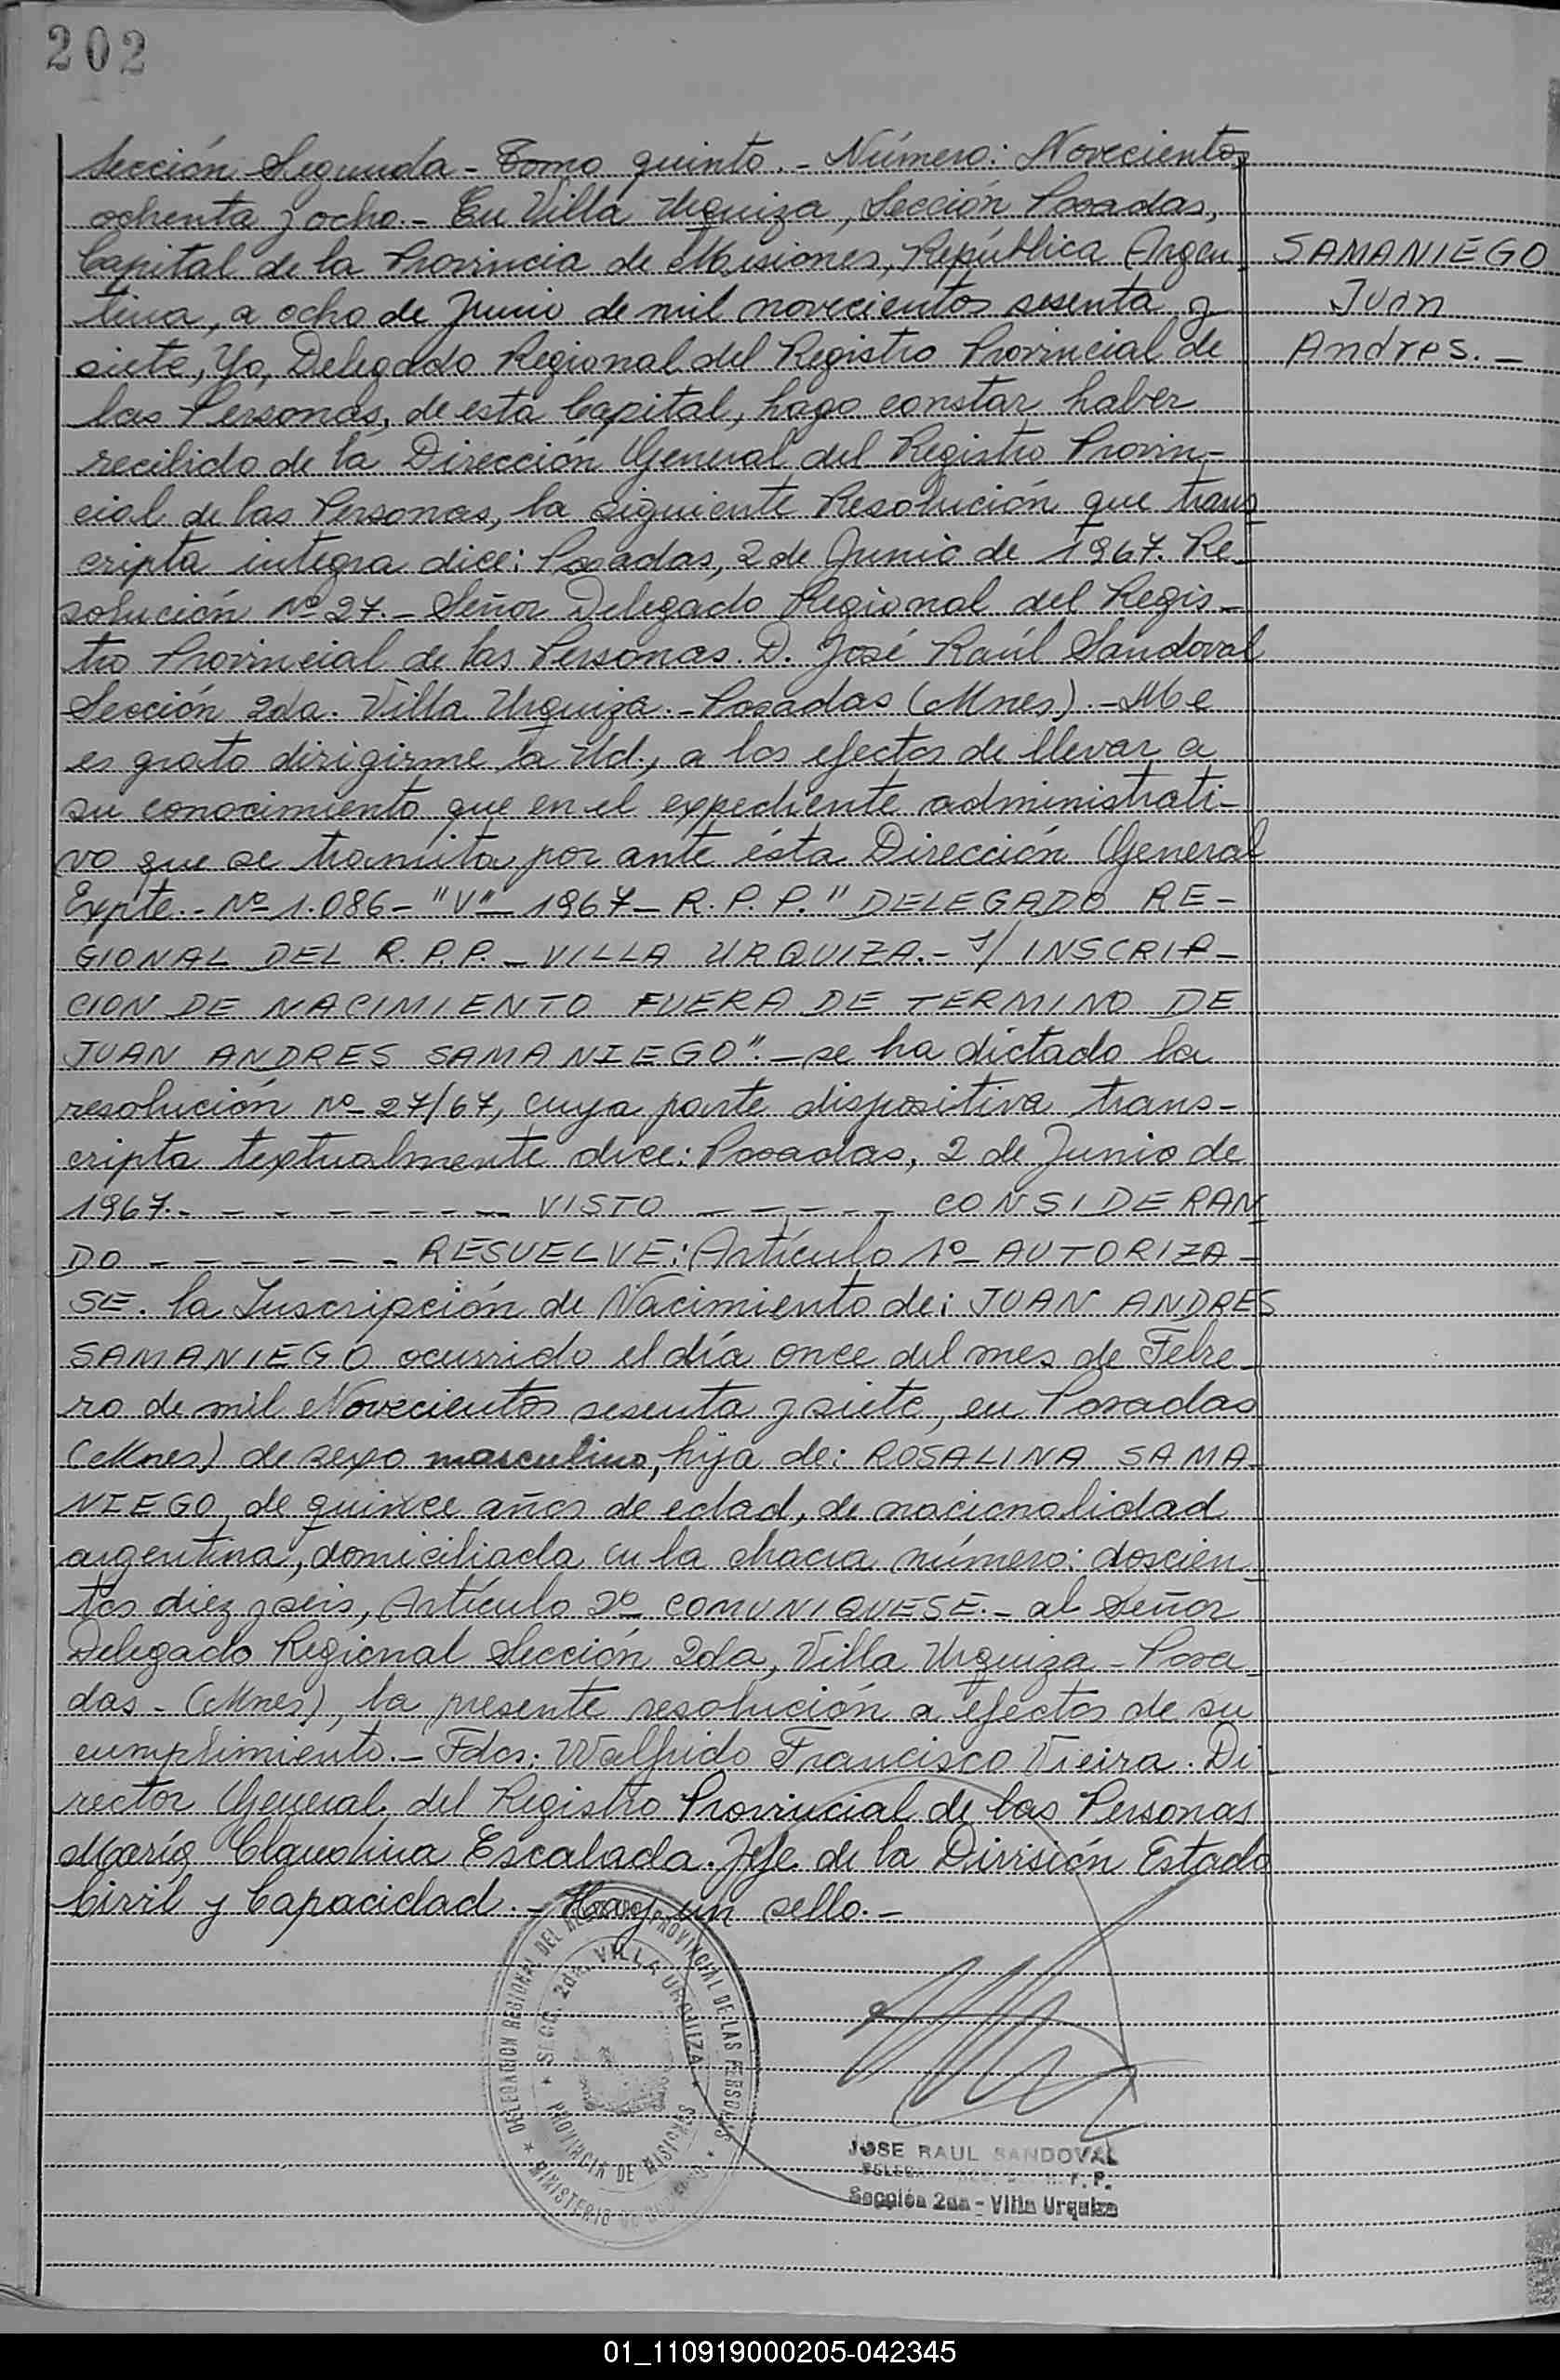 202
Sección Segunda - Tomo quinto. - Número: Novecientos
ochenta y ocho. - En Villa Urquiza, Sección Posadas,
Capital de la Provincia de Misiones, República Argen-
tina, a ocho de Junio de mil novecientos sesenta y
siete, Yo, Delegado Regional del Registro Provincial de
las Personas, de esta Capital, hago constar haber
recibido de la Dirección General del Registro Provin-
cial de las Personas, la siguiente Resolución que trans
cripta integra dice: Posadas, 2 de Junio de 1967. Re-
solución Nº 27. - Señor Delegado Regional del Regis-
tro Provincial de las Personas. D. José Raúl Sandoval
Sección 2da. Villa Urquiza. - Posadas (Mnes). - Me
es grato dirigirme a Ud., a los efectos de llevar a
su conocimiento que en el expediente administrati-
vo que se tramita por ante ésta Dirección General
Expte. - Nº 1.086 - "V" - 1967 - R. P. P. " DELEGADO RE-
GIONAL DEL R. P. P. - VILLA URQUIZA. - S/ INSCRIP-
CION DE NACIMIENTO FUERA DE TERMINO DE
JUAN ANDRES SAMANIEGO". - se ha dictado la
resolución Nº 27/67, cuya parte dispositiva trans-
cripta textualmente dice: Posadas, 2 de Junio de
1967. - - - - - - - - - VISTO - - - - - CONSIDERAN
DO - - - - - - RESUELVE: Artículo 1º AUTORIZA-
SE. la Inscripción de Nacimiento de: JUAN ANDRES
SAMANIEGO ocurrido el día once del mes de Febre-
ro de mil Novecientos sesenta y siete, en Posadas
(Mnes) de sexo masculino, hija de: ROSALINA SAMA-
NIEGO, de quince años de edad, de nacionalidad
argentina, domiciliada en la chacra número: doscien-
tos diez y seis, Artículo 2º COMUNIQUESE. - al Señor
Delegado Regional Sección 2da, Villa Urquiza - Posa-
das - (Mnes), la presente resolución a efectos de su
cumplimiento. - Fdos: Walfrido Francisco Vieira. Di-
rector General del Registro Provincial de las Personas
María Claudina Escalada. Jefe de la División Estado
Civil y Capacidad. - Hay un sello. -
SAMANIEGO
Juan
Andres. -
DELEGACION REGIONAL DEL REGISTRO PROVINCIAL DE LAS PERSONAS
SECC. 2da. VILLA URQUIZA
PROVINCIA DE MISIONES
MINISTERIO DE GOBIERNO
JOSE RAUL SANDOVAL
Sección 2da - Villa Urquiza
01_110919000205-042345